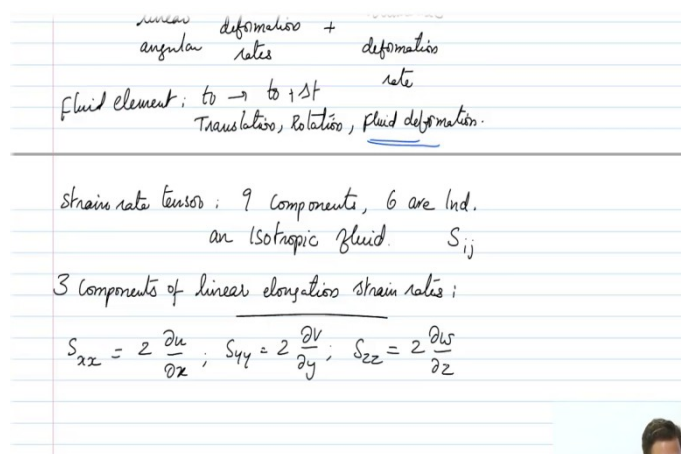 linear deformation +
angular rates deformation
rate
fluid element: to → to + Δt
Translation, Rotation, fluid deformation.
Strain rate tensor: 9 components, 6 are Ind.
an Isotropic fluid. Sij
3 Components of linear elongation strain rates:
Sxx = 2 ∂u/∂x ; Syy = 2 ∂v/∂y ; Szz = 2 ∂w/∂z